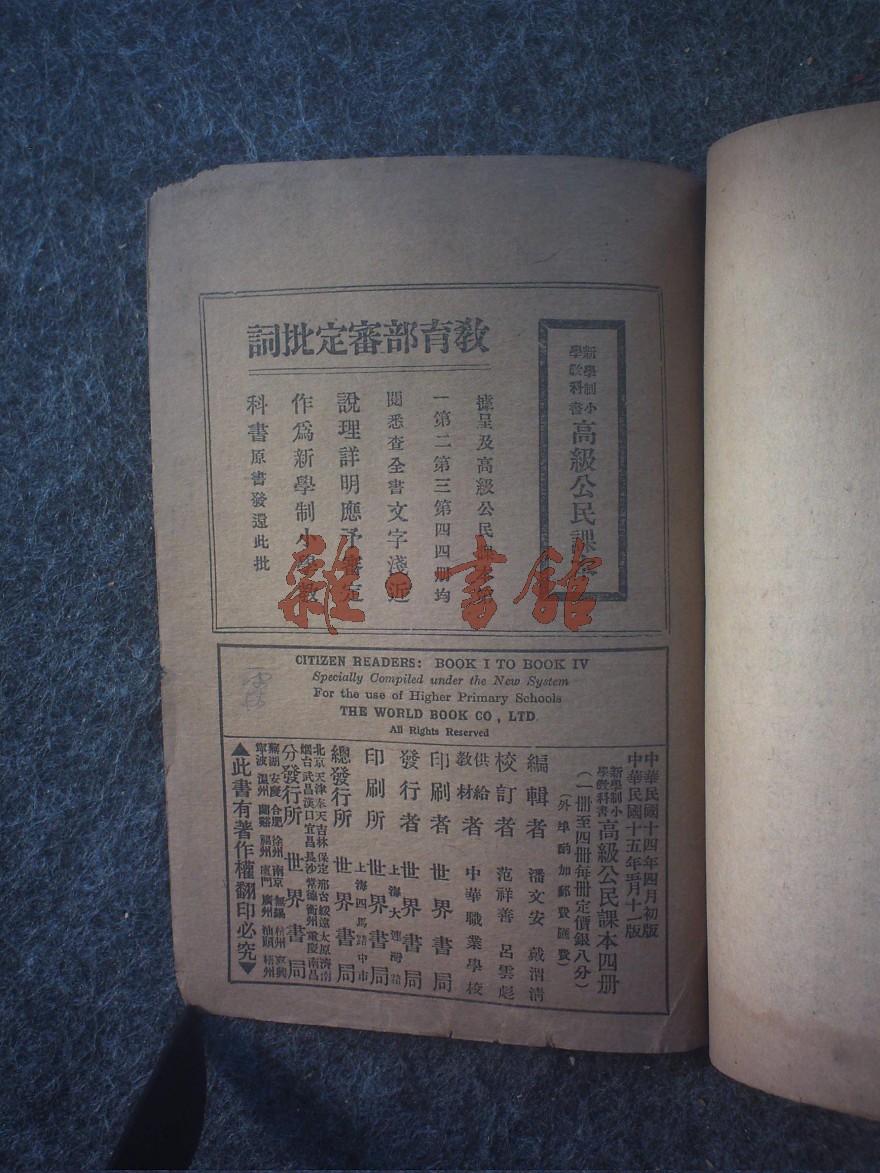 教育部審定批詞
新學制小
學教科書
高級公民課
據呈及高級公民
一第二第三第四四册均
閱悉查全書文字淺近
說理詳明應予審定
作爲新學制小
科書原書發還此批
雜·書館
CITIZEN READERS: BOOK I TO BOOK IV
Specially Compiled under the New System
For the use of Higher Primary Schools
THE WORLD BOOK CO., LTD.
All Rights Reserved
中華民國十四年四月初版
中華民國十五年 月十一版
新學制小
學教科書
高級公民課本四册
(一册至四册每册定價銀八分)
(外埠酌加郵費匯費)
編輯者 潘文安 戴渭清
校訂者 范祥善 呂雲彪
供給
教材者 中華職業學校
印刷者 世界書局
發行者 世界書局
印刷所 上海大連灣路 世界書局
總發行所 上海四馬路中市 世界書局
北京天津奉天吉林保定邢台綏遠太原濟南
烟台武昌漢口宜昌長沙常德衡州重慶南昌
分發行所 世界書局
蕪湖 安慶 合肥 徐州 南京 無錫 杭州 嘉興
寧波 溫州 蘭谿 福州 廈門 廣州 汕頭 梧州
▲此書有著作權翻印必究▼